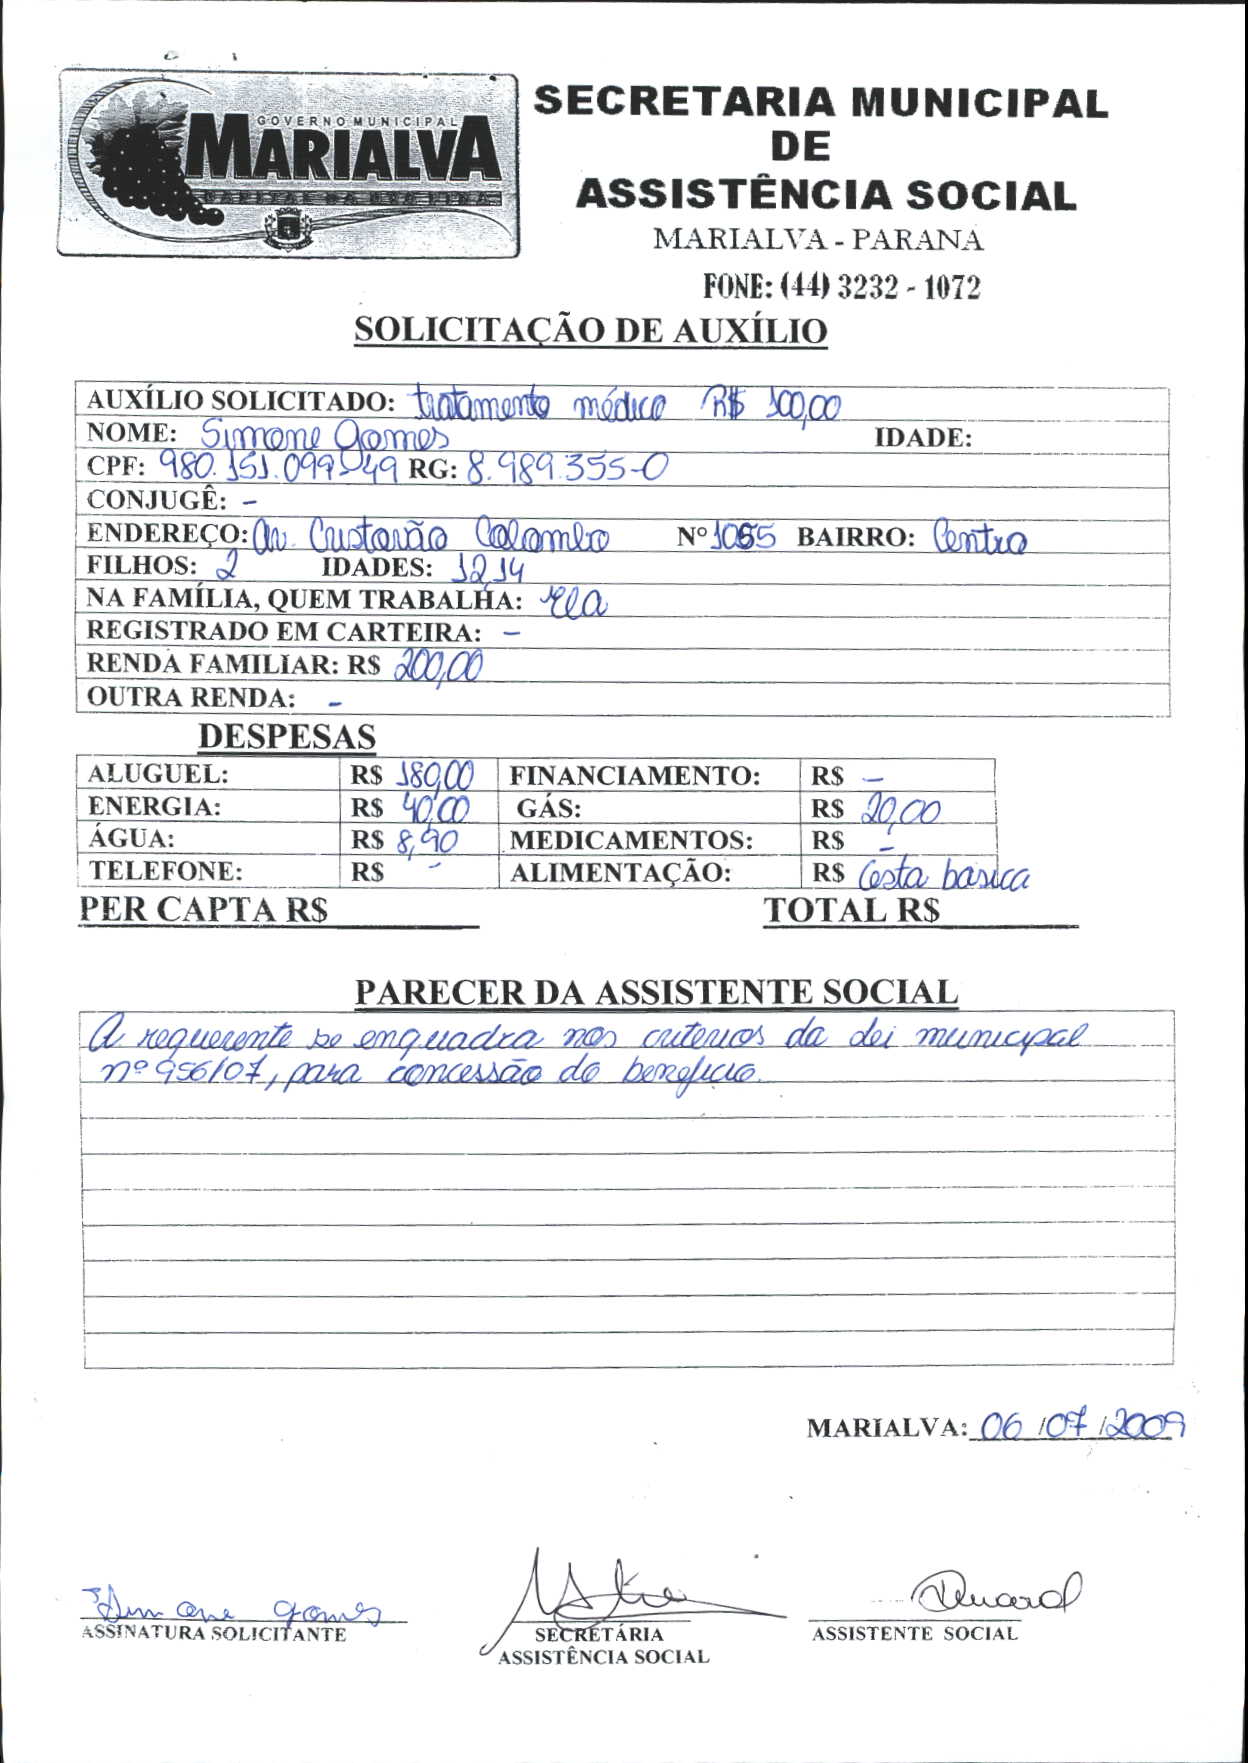 GOVERNO MUNICIPAL
MARIALVA
CAPITAL DA UVA FINA
SECRETARIA MUNICIPAL
DE
ASSISTÊNCIA SOCIAL
MARIALVA - PARANA
FONE: (44) 3232 - 1072
SOLICITAÇÃO DE AUXÍLIO
AUXÍLIO SOLICITADO: tratamento médico R$ 100,00
NOME: Simone Gomes IDADE:
CPF: 980.151.099-49 RG: 8.989.355-0
CONJUGÊ: -
ENDEREÇO: Av. Cristovão Colombo Nº 1055 BAIRRO: Centro
FILHOS: 2 IDADES: 12,14
NA FAMÍLIA, QUEM TRABALHA: Ela
REGISTRADO EM CARTEIRA: -
RENDA FAMILIAR: R$ 200,00
OUTRA RENDA: -
DESPESAS
ALUGUEL: R$ 180,00 FINANCIAMENTO: R$ -
ENERGIA: R$ 40,00 GÁS: R$ 20,00
ÁGUA: R$ 8,90 MEDICAMENTOS: R$ -
TELEFONE: R$ - ALIMENTAÇÃO: R$ Cesta basica
PER CAPTA R$ TOTAL R$
PARECER DA ASSISTENTE SOCIAL
A requerente se enquadra nos criterios da lei municipal
nº 956/07, para concessão do beneficio.
MARIALVA: 06/07/2009
Simone Gomes
ASSINATURA SOLICITANTE
SECRETÁRIA
ASSISTÊNCIA SOCIAL
ASSISTENTE SOCIAL